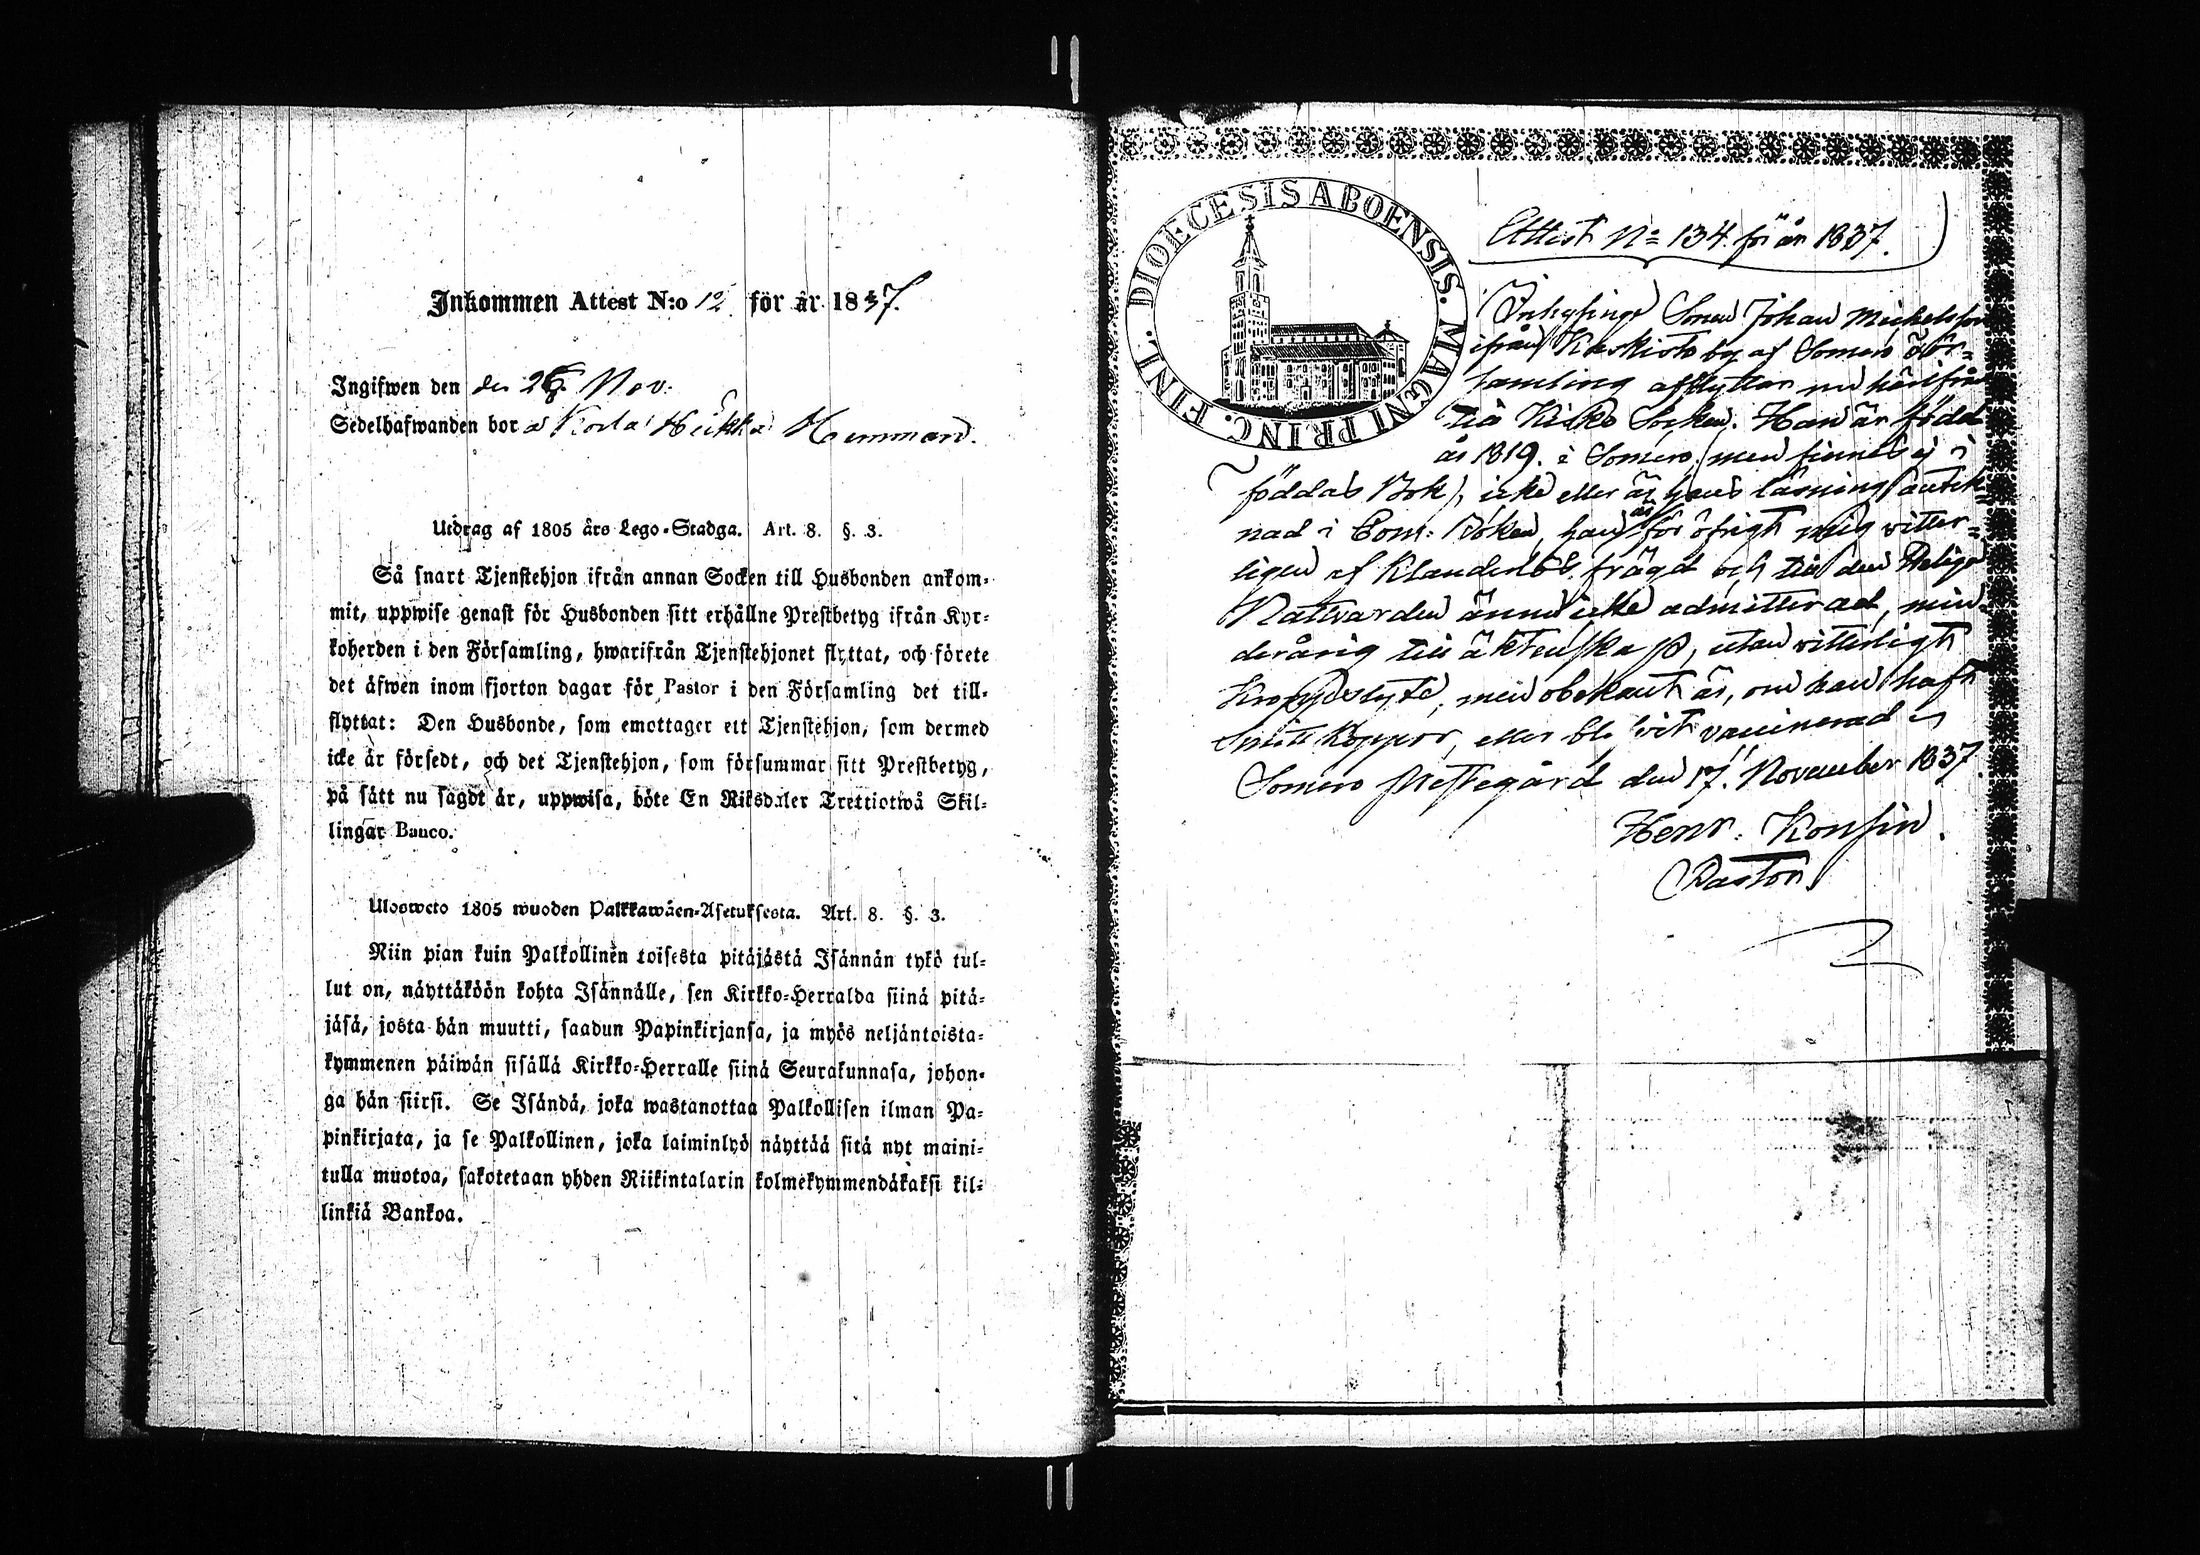 Inkommen Attest N:o 12 för år 1837.
Ingifwen den den 26 Nov.
Sedelhafwanden bor å Korla Heikkilä Hemman.
Utdrag af 1805 års Lego-Stadga. Art. 8. §. 3.
Så snart Tjenstehjon ifrån annan Socken till Husbonden ankom-
mit, uppwise genast för Husbonden sitt erhållne Prestbetyg ifrån Kyr-
koherden i den Församling, hwarifrån Tjenstehjonet flyttat, och förete
det äfwen inom fjorton dagar för Pastor i den Församling det till-
flyttat: Den Husbonde, som emottager ett Tjenstehjon, som dermed
icke är försedt, och det Tjenstehjon, som försummar sitt Prestbetyg,
på sätt nu sagdt är, uppwisa, böte En Riksdaler Trettiotwå Skil-
lingar Banco.
Ulosweto 1805 wuoden Palkkawäen-Asetuksesta. Art. 8. §. 3.
Niin pian kuin Palkollinen toisesta pitäjästä Isännän tykö tul-
lut on, näyttäköön kohta Isännälle, sen Kirkko-Herralda siinä pitä-
jäsä, josta hän muutti, saadun Papinkirjansa, ja myös neljäntoista-
kymmenen päiwän sisällä Kirkko-Herralle siinä Seurakunnasa, johon-
ga hän siirsi. Se Isändä, joka wastanottaa Palkollisen ilman Pa-
pinkirjata, ja se Palkollinen, joka laiminlyö näyttää sitä nyt maini-
tulla muotoa, sakotetaan yhden Riikintalarin kolmekymmendäkaksi kil-
linkiä Bankoa.
DIOECESIS ABOENSIS. MAGNI PRINC. FINL.
Attest No 134 för år 1837.
Inhysinge Sonen Johan Michelsson
ifrån Kaskisto by af Somero För-
samling afflyttar nu härifrån
till Kisko Socken. Han är född
år 1819. i Somero, men finnes ej i
föddas Bok, icke eller är hans läsning anteck-
nad i Com: Boken, han är för öfrigt mig witter-
ligen af Klanderlös frägd och till den Helige
Nattvarden ännu icke admitterad, min-
derårig till äktenskap, utan witterligt
Kroppslyte, men obekant är, om han haft
Smittkoppor, eller blifvit vaccinerad
Somero Prestegård den 17. November 1837.
Henr: Konsin.
Pastor